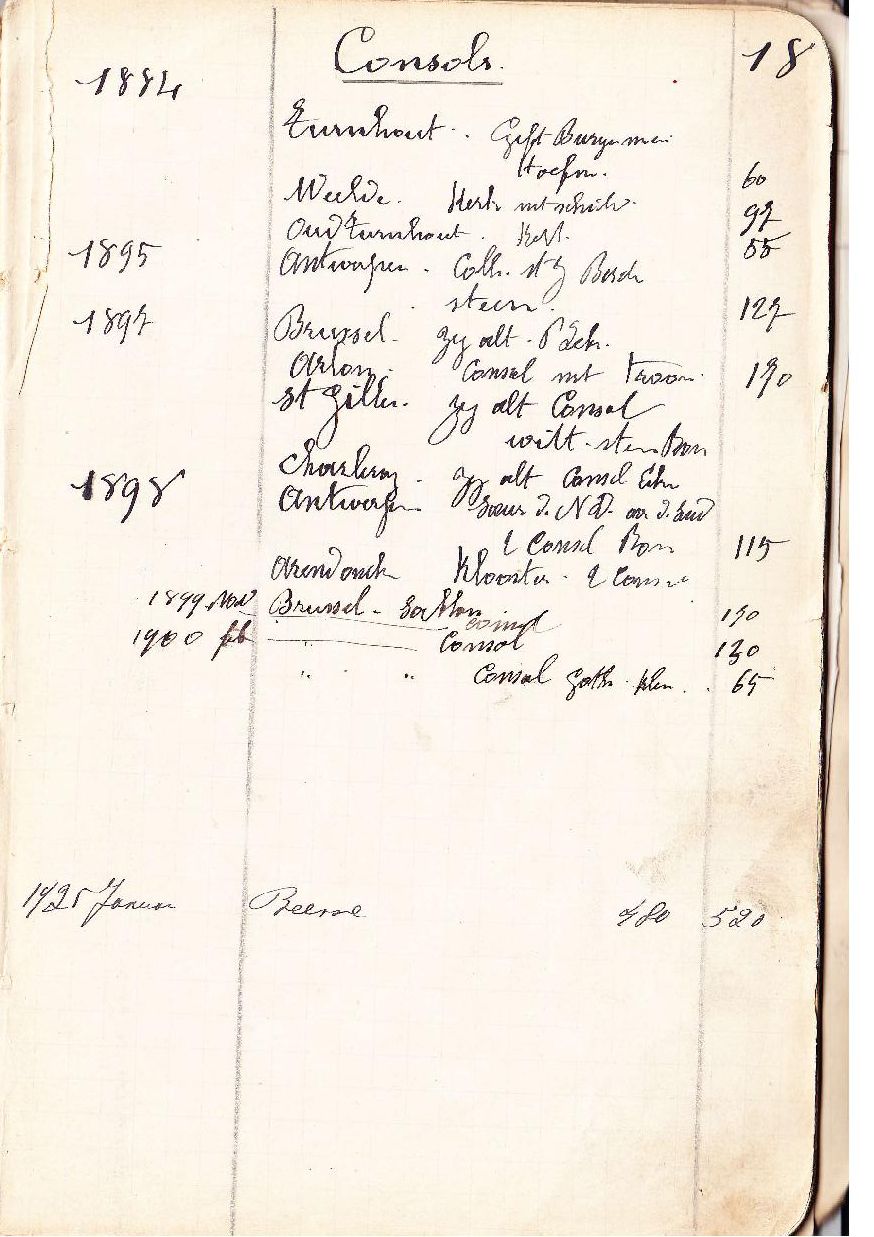 Consols. 18
1894
Turnhout. Gift Burgemei
Hoefm. 60
Weelde. Kerk met schild. 97
Oud Turnhout. Kerk. 55
1895 Antwerpen. Coll. st J Berch
steen. 127
1897 Brussel. zy alt.
Arlon. Consol met troon. 190
St Gilles. zy alt Consol
witt. steen Rom
Charleroy. zy alt Consol Eik
1898 Antwerpen Soeur d. N D.
2 Consol Rom 115
Arendonck Klooster. 2 Consol
1899 Nov Brussel. 190
1900 feb " Consol 130
" " Consol Goth. klein. 65
1925 Januar Beerse 480 520